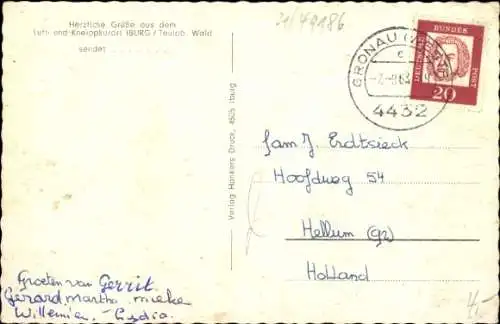 Herzliche Grüße aus dem
Luft- und Kneippkurort IBURG / Teutob. Wald
sendet
31/40186
GRONAU (WESTF)
c
-7.-8.63
4432
DEUTSCHE BUNDESPOST
20
Verlag Hankers Druck, 4505 Iburg
fam J. Erdtsieck
Hoofdweg 54
Hellum (Gr)
Holland
Groeten van Gerrit
Gerard, martha, mieke
Willemien, Lydia.
4,-